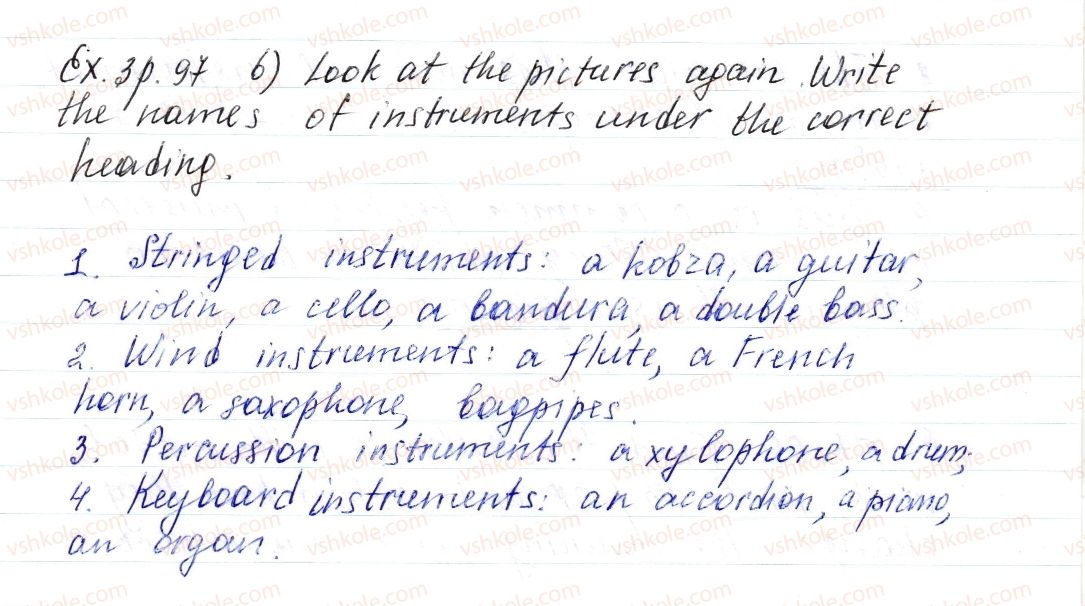 Ex. 3p. 97 б) Look at the pictures again. Write
the names of instruments under the correct
heading.
1. Stringed instruments: a kobza, a guitar,
a violin, a cello, a bandura, a double bass.
2. Wind instruments: a flute, a French
horn, a saxophone, bagpipes.
3. Percussion instruments: a xylophone, a drum;
4. Keyboard instruments: an accordion, a piano,
an organ.